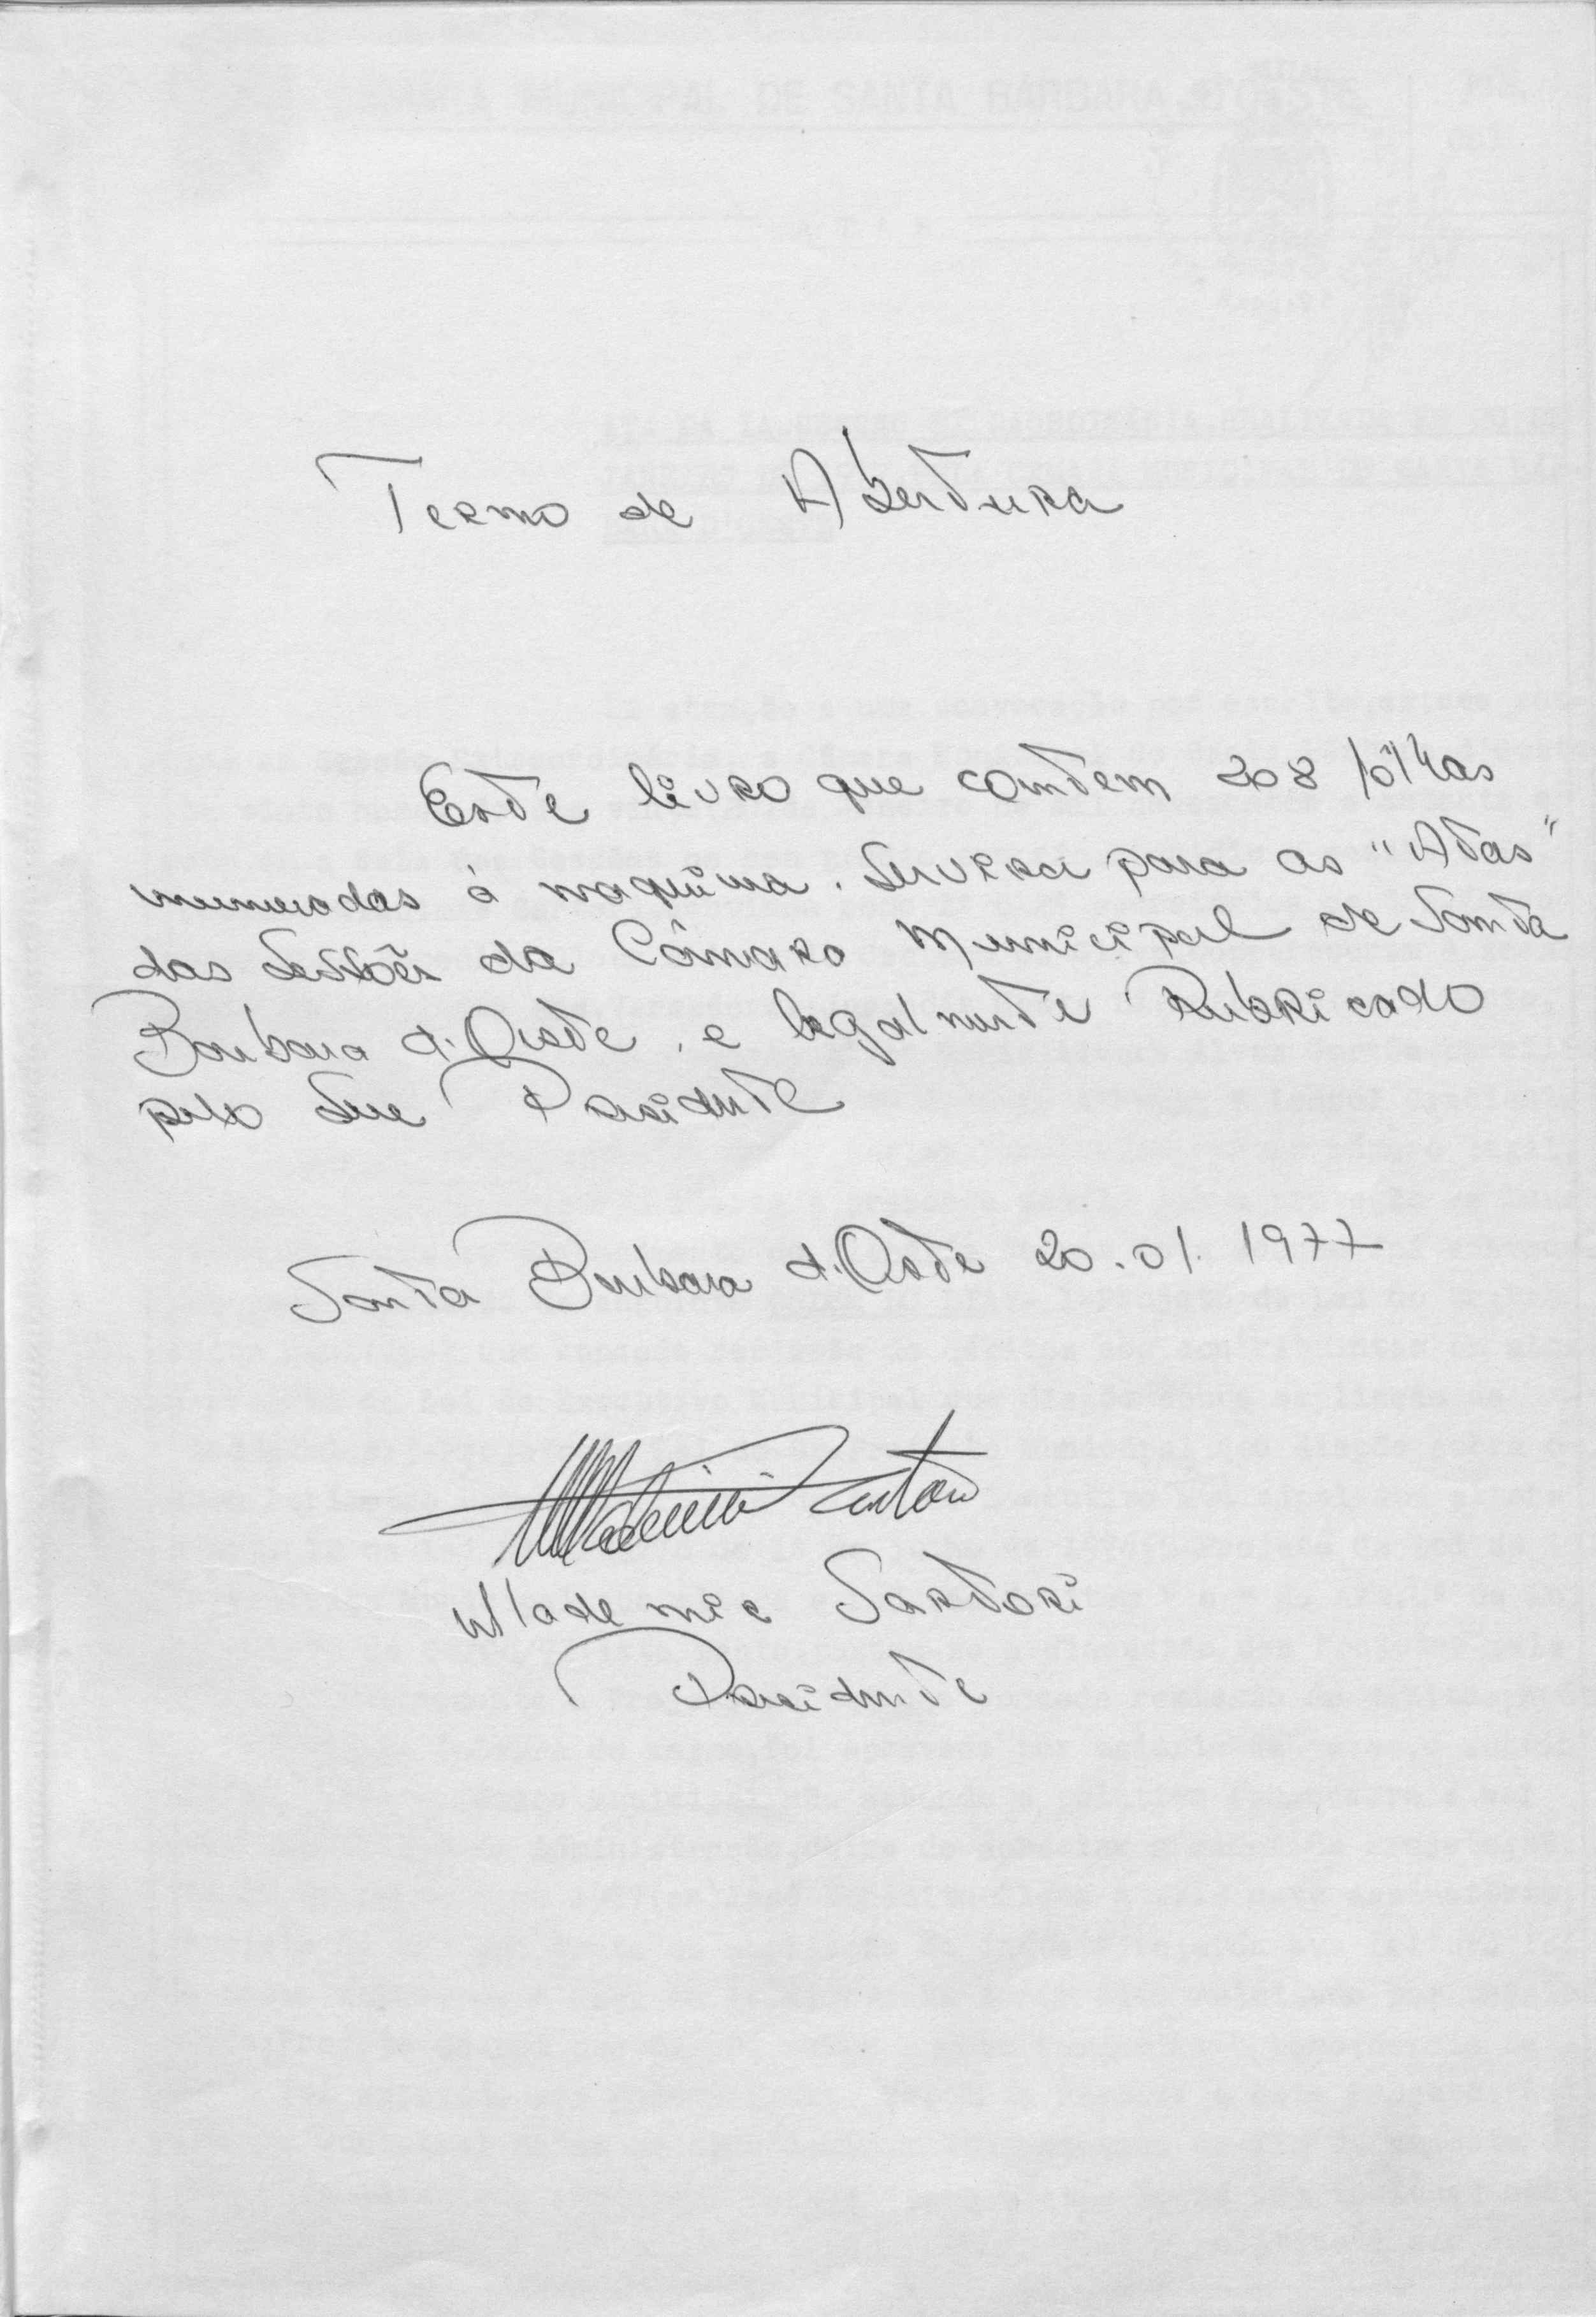 Termo de Abertura
Este livro que contem 208 fôlhas
numeradas à maquina. Servira para as "Atas"
das Sessões da Câmara Municipal de Santa
Barbara d'Oeste, e legalmente Rubricado
pelo Seu Presidente
Santa Barbara d'Oeste 20.01.1977
Wlademir Sartori
Presidente